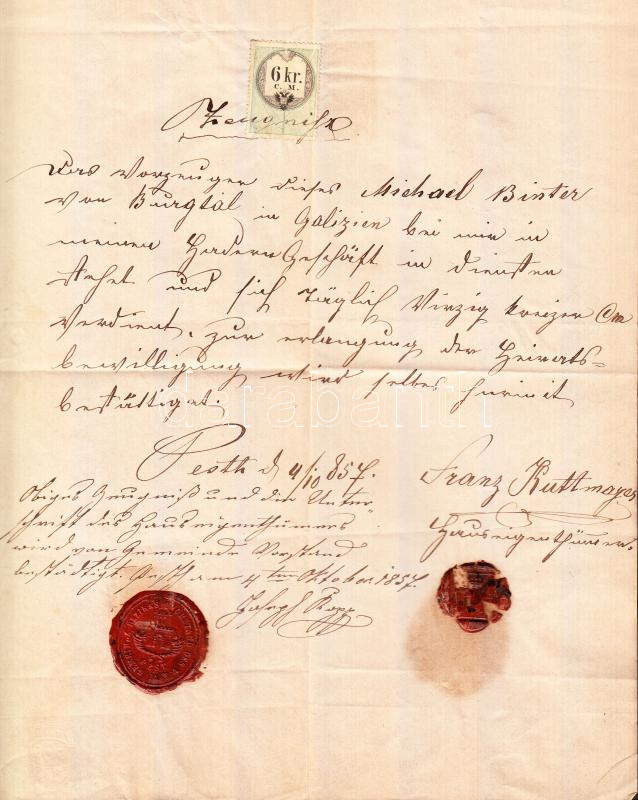 6 kr.
C. M.
Zeugniß
Das Vorzeuger dieses Michael Binter
von Burgtal in Galizien bei mir in
meinen Hadern Geschäft in diensten
stehet und sich täglich Virzig kreizer Cm
Verdient, zur erlangung der Heirats-
bewilligung wird selbes hirmit
bestättiget.
Pesth d 4/10 857.
Franz Kuttmayer
Hauseigenthümer.
Obiges Zeugniß und die Unter
schrift des Hauseigenthümers
wird von Gemeinde Vorstand
bestädtigt. Pesth am 4ten Oktober 1857
Joseph Rapp
darabanth